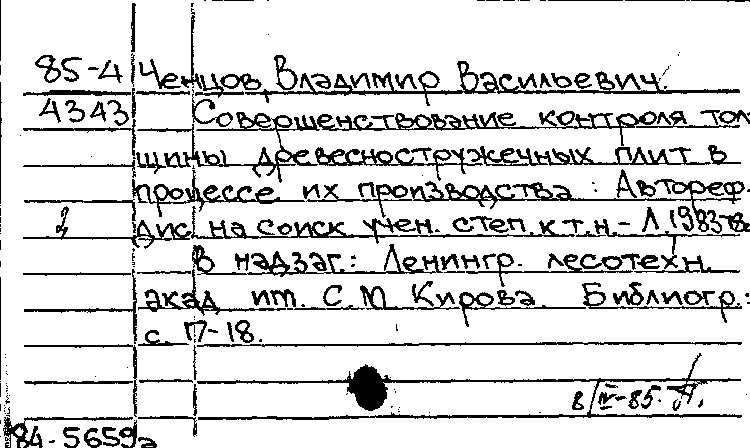 85-4 Ченцов, Владимир Васильевич.
4343 Совершенствование контроля тол
щины древесностружечных плит в
процессе их производства : Автореф.
дис. на соиск учен. степ. к.т.н. - Л. 1983
В надзаг.: Ленингр. лесотехн.
акад им. С.М Кирова. Библиогр.:
с. 17-18.
8/IV-85.
84-5659а